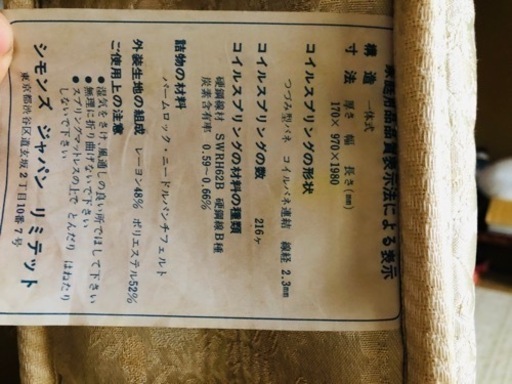 家庭用品品質表示法による表示
構造 一体式
寸法 厚さ 幅 長さ(mm)
170×970×1980
コイルスプリングの形状
つづみ型バネ コイルバネ連結 線経 2.3mm
コイルスプリングの数 216ヶ
コイルスプリングの材料の種類
硬鋼線材 SWRH62B 硬鋼線B種
炭素含有率 0.59〜0.66%
詰物の材料
パームロック・ニードルパンチフェルト
外装生地の組成 レーヨン48% ポリエステル52%
ご使用上の注意
●湿気をさけ、風通しの良い所でほして下さい
●無理に折り曲げないで下さい
●スプリングマットレスの上で とんだり はねたり
しないで下さい
シモンズ ジャパン リミテッド
東京都渋谷区道玄坂2丁目10番7号